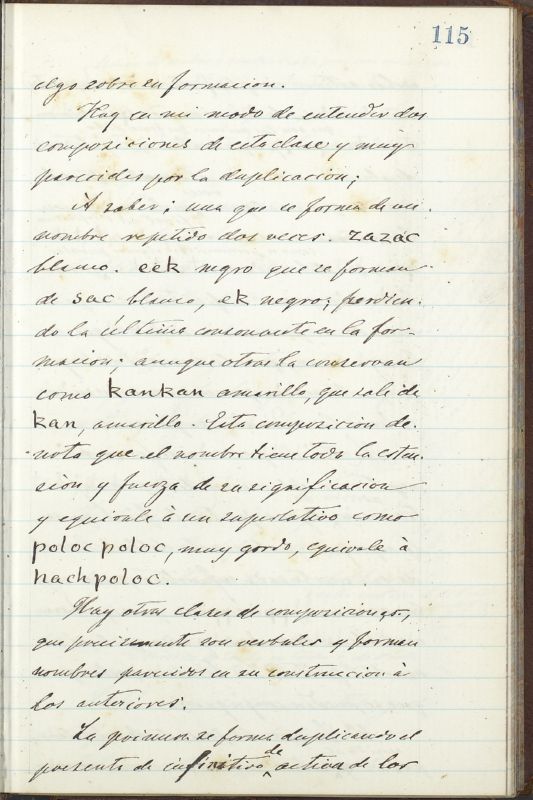 115
algo sobre su formacion.
Hay en mi modo de entender dos
composiciones de esta clase y muy
parecidas por la duplicacion;
A saber; una que se forma de un
nombre repetido dos veces. zazac
blanco. eek negro que se forman
de sac blanco, ek negro; perdien-
do la última consonante en la for-
macion; aunque otros la conservan
como kankan amarillo, que sale de
kan, amarillo. Esta composicion de-
nota que el nombre tiene toda la esten-
sion y fuerza de su significacion
y equivale à un superlativo como
poloc poloc, muy gordo, equivale à
hach poloc.
Hay otras clases de composiciones,
que precisamente son verbales y forman
nombres parecidos en su construccion à
los anteriores.
La primera se forma duplicando el
presente de infinitivo de activa de los